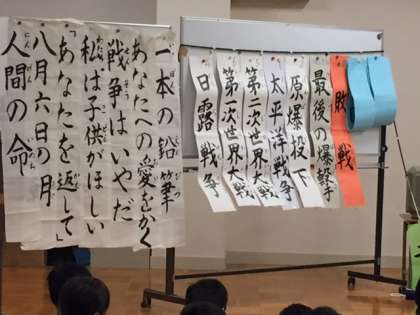 敗戦
最後の爆撃
原爆投下
太平洋戦争
第二次世界大戦
第一次世界大戦
日露戦争
一本の鉛筆
あなたへの愛をかく
戦争はいやだ
私は子供がほしい
「あなたを返して」
八月六日の月
人間の命